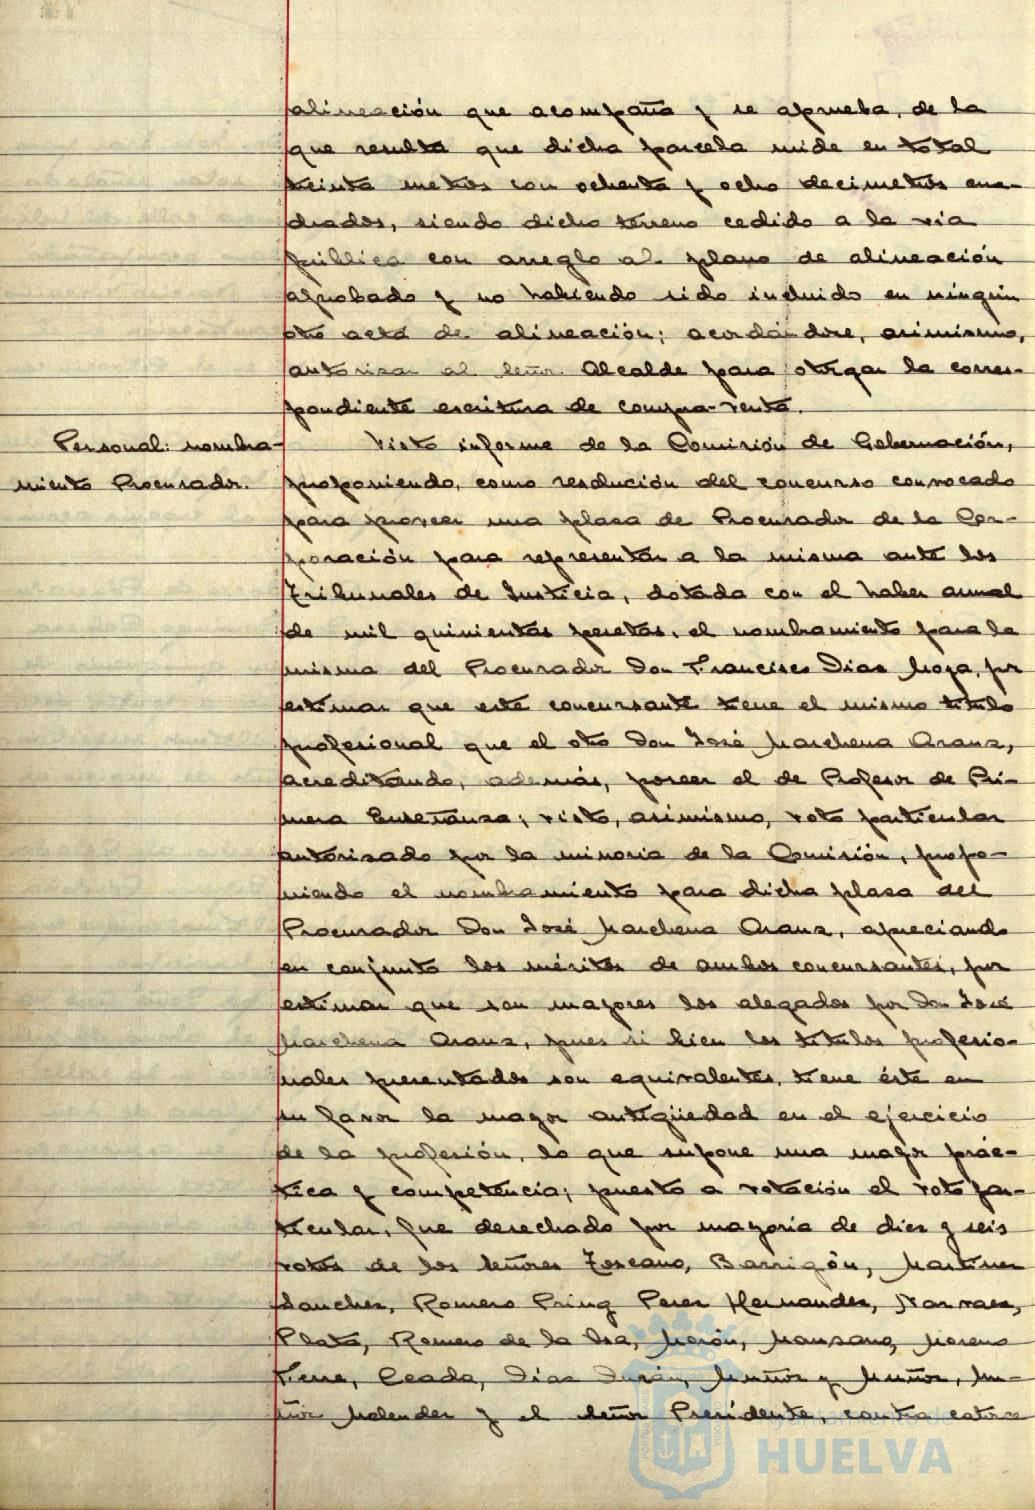 alineación que acompaña y se aprueba, de la
que resulta que dicha parcela mide en total
treinta metros con ochenta y ocho decímetros cua-
drados, siendo dicho terreno cedido a la vía
pública con arreglo al plano de alineación
aprobado y no habiendo sido incluido en ningún
otro acta de alineación; acordándose, asimismo,
autorizar al señor Alcalde para otorgar la corres-
pondiente escritura de compra-venta.
Personal: nombra-
miento Procurador.
Visto informe de la Comisión de Gobernación,
proponiendo, como resolución del concurso convocado
para proveer una plaza de Procurador de la Cor-
poración para representar a la misma ante los
Tribunales de Justicia, dotada con el haber anual
de mil quinientas pesetas, el nombramiento para la
misma del Procurador Don Francisco Díaz Moya, por
estimar que este concursante tiene el mismo título
profesional que el otro Don José Marchena Aranz,
acreditando, además, poseer el de Profesor de Pri-
mera Enseñanza; visto, asimismo, voto particular
autorizado por la minoria de la Comisión, propo-
niendo el nombramiento para dicha plaza del
Procurador Don José Marchena Aranz, apreciando
en conjunto los méritos de ambos concursantes, por
estimar que son mayores los alegados por Don José
Marchena Aranz, pues si bien los títulos profesio-
nales presentados son equivalentes, tiene éste en
su favor la mayor antigüedad en el ejercicio
de la profesión, lo que supone una mayor prác-
tica y competencia; puesto a votación el voto par-
ticular, fue desechado por mayoría de diez y seis
votos de los señores Toscano, Barrigón, Martinez
Sanchez, Romero Pring Perez Hernandez, Narvaez,
Plata, Romero de la Osa, Morón, Manzano, Moreno
Ceada, Díaz Durán, Muñoz y Muñoz, Mu-
ñoz Melendez y el señor Presidente, contra catorce
Ayuntamiento de
HUELVA